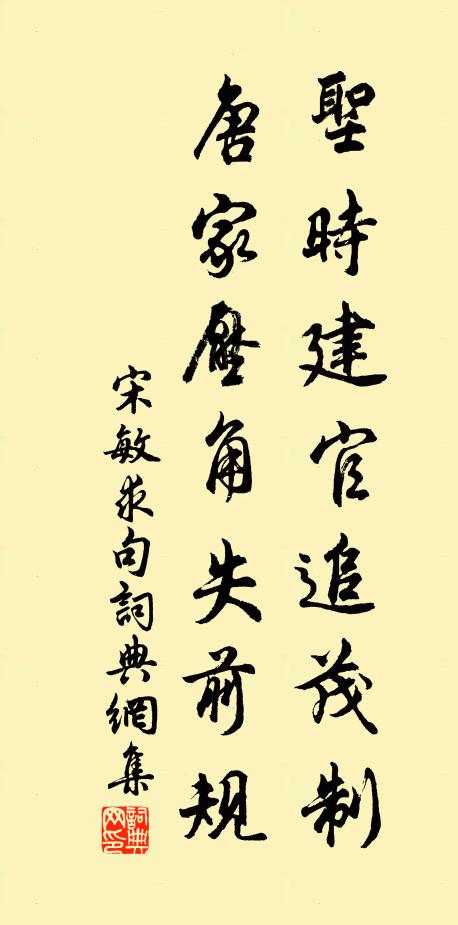 聖時建官追茂制
唐家壓角失前規
宋敏求句詞典網集
詞典網印